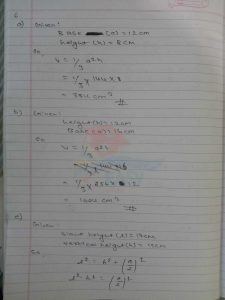 6
a) Given:
Base (a) = 12 cm
height (h) = 8 cm
So,
V = 1/3 a²h
= 1/3 × 144 × 8
= 384 cm³
b) Given:
height (h) = 12 cm
Base (a) = 16 cm
So
V = 1/3 a²h
= 1/3 × 256 × 12
= 1024 cm³
c)
Given
slant height (l) =
vertical height (h) = 15 cm
So,
l² = h² + (a/2)²
l² - h² = (a/2)²